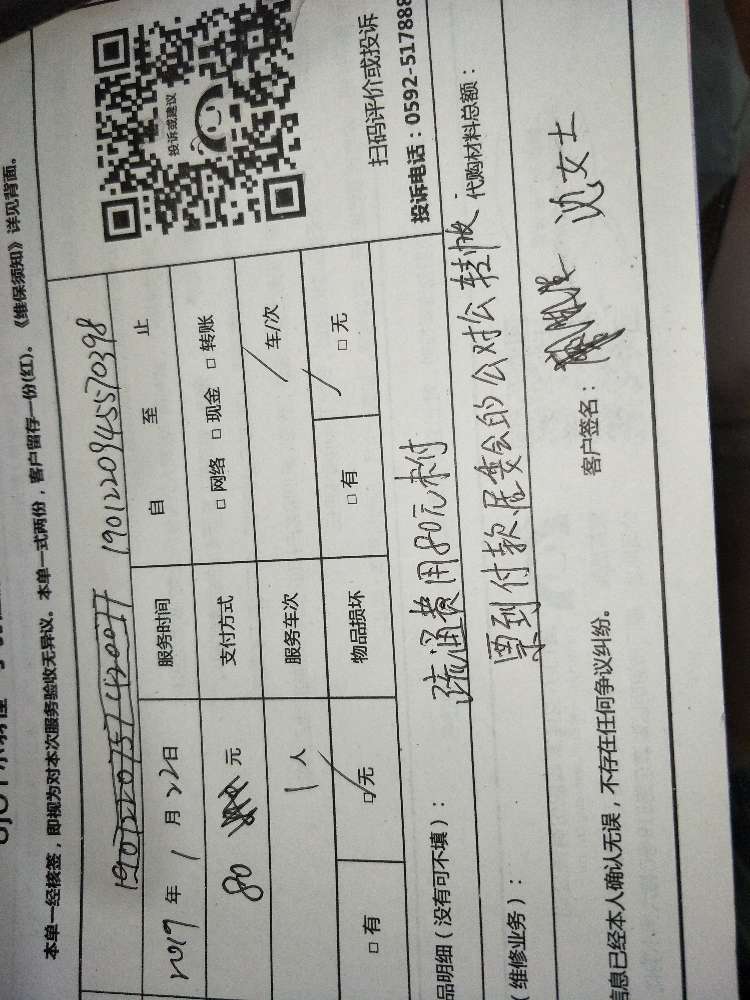 本单一经核签，即视为对本次服务验收无异议。本单一式两份，客户留存一份(红)。《维保须知》详见背面。
1901220945570398
2019 年 1 月 22 日 服务时间 自 至 止
80 元 支付方式 □ 网络 □ 现金 □ 转账
1 人 服务车次 车/次
□ 有 □ 无 物品损坏 □ 有 □ 无
投诉或建议
扫码评价或投诉
投诉电话：0592-517888
品明细（没有可不填）： 疏通费用80元未付
（维修业务）： 票到付款居委会的公对公转帐. 代购材料总额：
信息已经本人确认无误，不存在任何争议纠纷。 客户签名： 沈女士